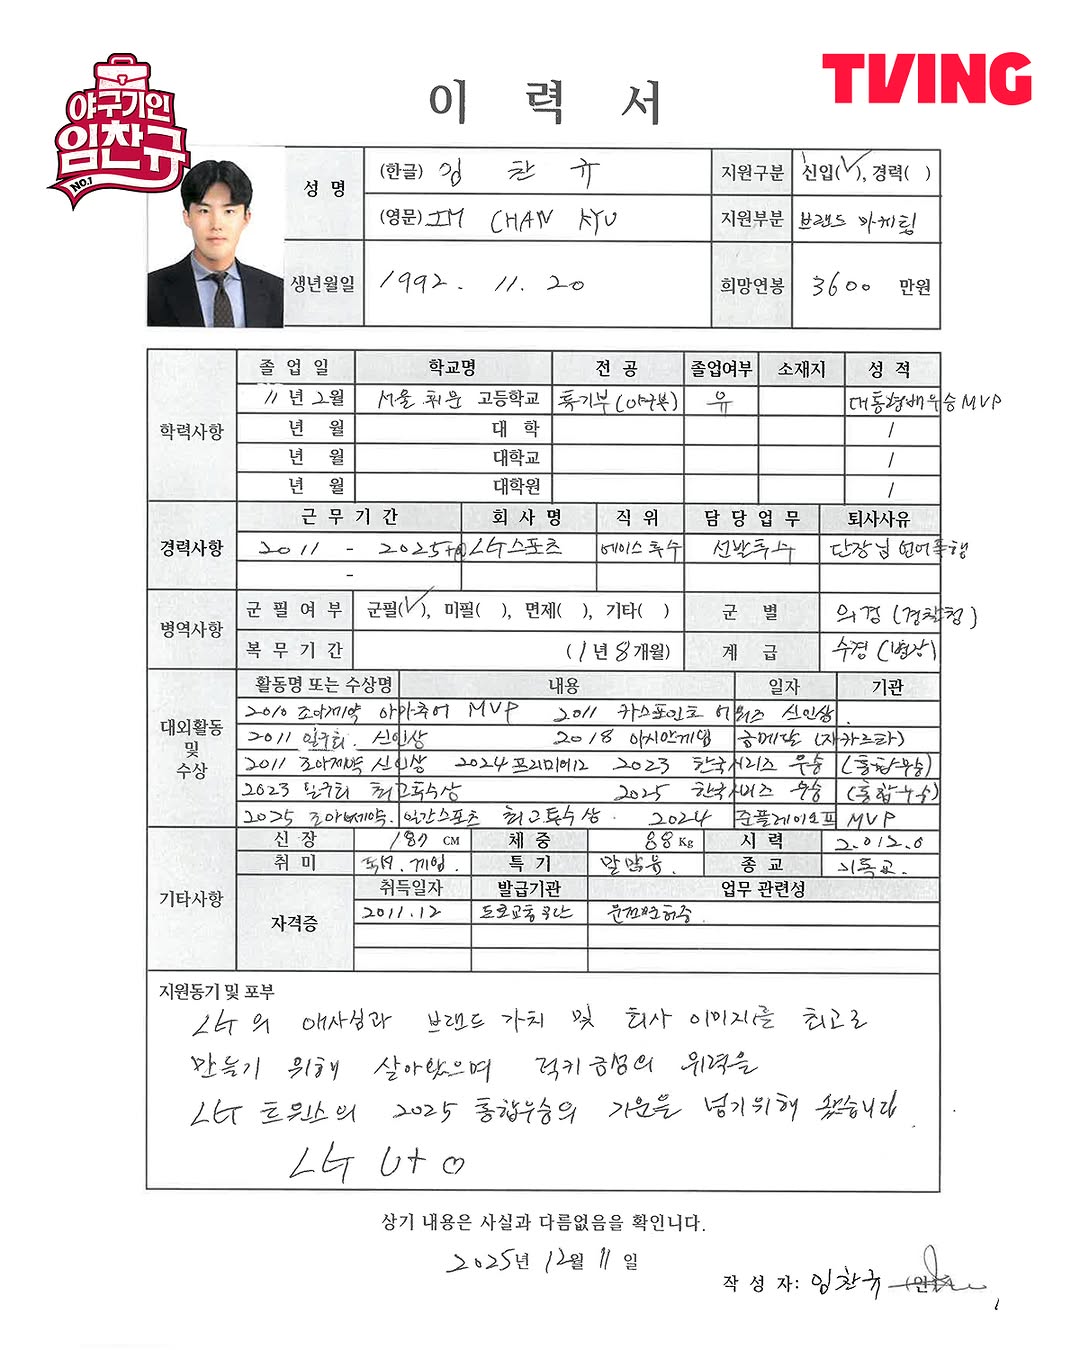 야구기인
임찬규
NO.1
TVING
이 력 서
성 명 (한글) 임 찬 규 지원구분 신입(✓), 경력( )
(영문) IM CHAN KYU 지원부분 브랜드 마케팅
생년월일 1992. 11. 20 희망연봉 3600 만원
학력사항 졸 업 일 학교명 전 공 졸업여부 소재지 성 적
11 년 2월 서울 휘문 고등학교 특기부(야구부) 유 대통령배우승 MVP
년 월 대 학 /
년 월 대학교 /
년 월 대학원 /
경력사항 근 무 기 간 회 사 명 직 위 담 당 업 무 퇴사사유
2011 - 2025+@ LG스포츠 에이스 투수 선발투수 단장님 언어폭행
-
병역사항 군 필 여 부 군필(✓), 미필( ), 면제( ), 기타( ) 군 별 의경 (경찰청)
복 무 기 간 (1년 8개월) 계 급 수경 (병장)
대외활동 및 수상 활동명 또는 수상명 내용 일자 기관
2010 조아제약 아마추어 MVP 2011 카스포인트 어워즈 신인상.
2011 일구회. 신인상 2018 아시안게임 금메달 (자카르타)
2011 조아제약 신인상 2024 프리미어12 2023 한국시리즈 우승 (통합우승)
2023 일구회 최고투수상 2025 한국시리즈 우승 (통합우승)
2025 조아제약. 일간스포츠 최고투수상. 2024 준플레이오프 MVP
기타사항 신 장 187 CM 체 중 88 Kg 시 력 2.0/2.0
취 미 독서. 게임. 특 기 말많음. 종 교 기독교.
자격증 취득일자 발급기관 업무 관련성
2011.12 도로교통공단 운전면허증.
지원동기 및 포부
LG의 애사심과 브랜드 가치 및 회사 이미지를 최고로
만들기 위해 살아왔으며 럭키금성의 위력을
LG 트윈스의 2025 통합우승의 기운을 넘기위해 왔습니다.
LG U+ ♡
상기 내용은 사실과 다름없음을 확인니다.
2025년 12월 11 일
작 성 자: 임찬규 (인)